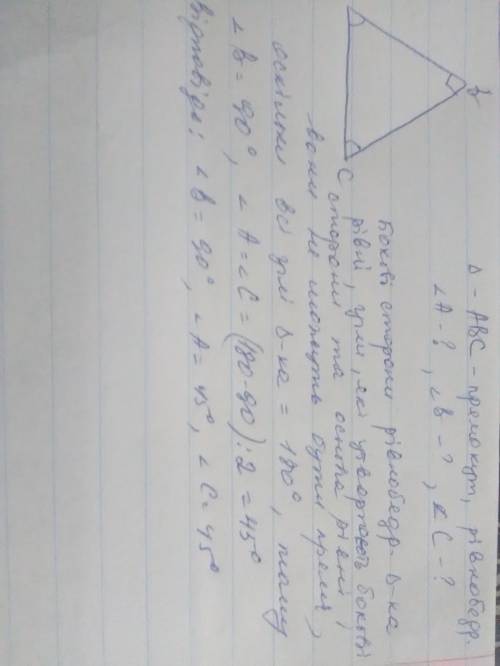 В
Δ - АВС - прямокут, рівнобедр.
∠А - ?, ∠В - ?, ∠С - ?
С
Бокові сторони рівнобедр. Δ-ка
рівні, кути, які утворюють бокові
сторони та основа рівні,
вони не можуть бути прямі,
оскільки всі кути Δ-ка = 180°, тому
∠В = 90°, ∠А = ∠С = (180-90):2 = 45°
Відповідь: ∠В = 90°, ∠А = 45°, ∠С = 45°